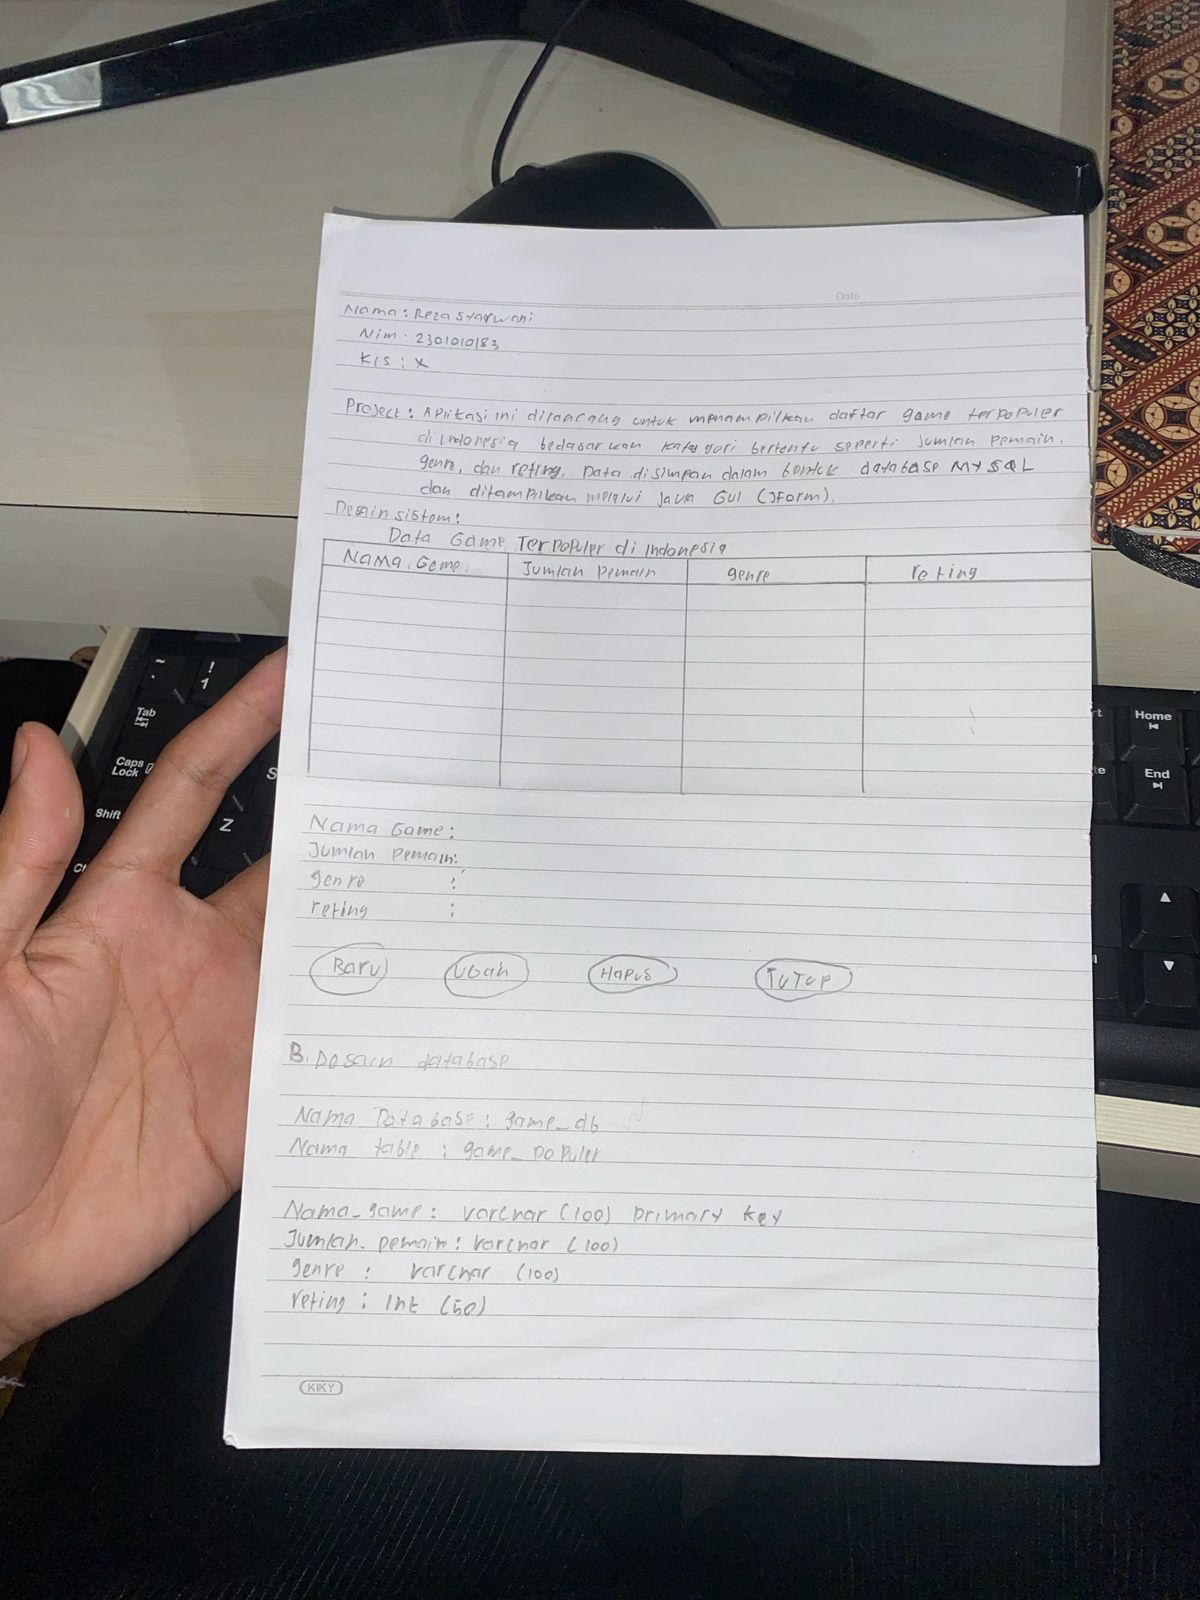 Date
Nama : Reza Syarwani
Nim : 2301010183
Kls : X
Project : Aplikasi ini dirancang untuk menampilkan daftar game terpopuler
di indonesia bedasarkan kategori bertentu seperti Jumlah pemain,
genre, dan reting. Data disimpan dalam bentuk database MySQL
dan ditampilkan melalui java GUI (JForm).
Desain sistem :
Data Game Terpopuler di indonesia
Nama Game Jumlah pemain genre reting
Nama Game :
Jumlah pemain :
genre :
reting :
Baru Ubah Hapus TUTUP
B. Desain database
Nama Database : game_db
Nama table : game_populer
Nama_game : varchar (100) primary key
Jumlah_pemain : varchar (100)
genre : varchar (100)
reting : Int (50)
KIKY
~
`
!
1
Tab
Caps
Lock
Shift
S
Z
Home
End